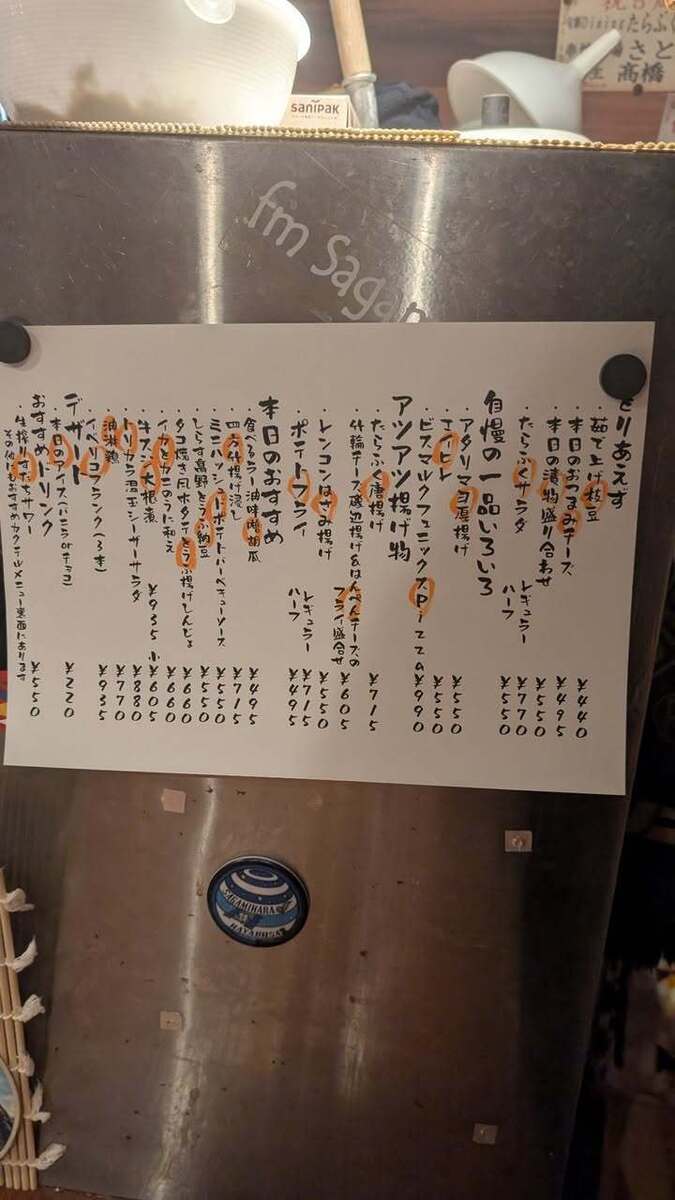 sanipak
祝
Diningたらふく
さと
高橋
fm Sagam
とりあえず
・茹で上げ枝豆 ¥440
・本日のおつまみチーズ ¥495
・本日の漬物盛り合わせ ¥550
・たらふくサラダ レギュラー ¥770
ハーフ ¥550
自慢の一品いろいろ
・アタリマヨ厚揚げ ¥550
・エイヒレ ¥550
・ビスマルクフェニックスPizza ¥990
アツアツ揚げ物
・たらふく唐揚げ ¥715
・竹輪チーズ磯辺揚げ&はんぺんチーズの
フライ盛合せ ¥605
・レンコンはさみ揚げ ¥550
・ポテトフライ レギュラー ¥715
ハーフ ¥495
本日のおすすめ
・食べるラー油味噌胡瓜 ¥495
・四方竹揚げ浸し ¥715
・ミニハッシュドポテトバーベキューソース ¥550
・しらす高野とうふ納豆 ¥550
・タコ焼き風ホタテとうふ揚げしんじょ ¥660
・イカとカニのうに和え ¥660
・牛スジ大根煮 ¥935 小¥605
・トリカラ温玉シーザーサラダ ¥880
・油淋鶏 ¥770
・イベリコフランク(3本) ¥935
デザート
・本日のアイス(バニラorチョコ) ¥220
おすすめドリンク
・生搾りすだちサワー ¥550
その他にもおすすめカクテルメニュー裏面にあります
SAGAMIHARA
HAYABUSA